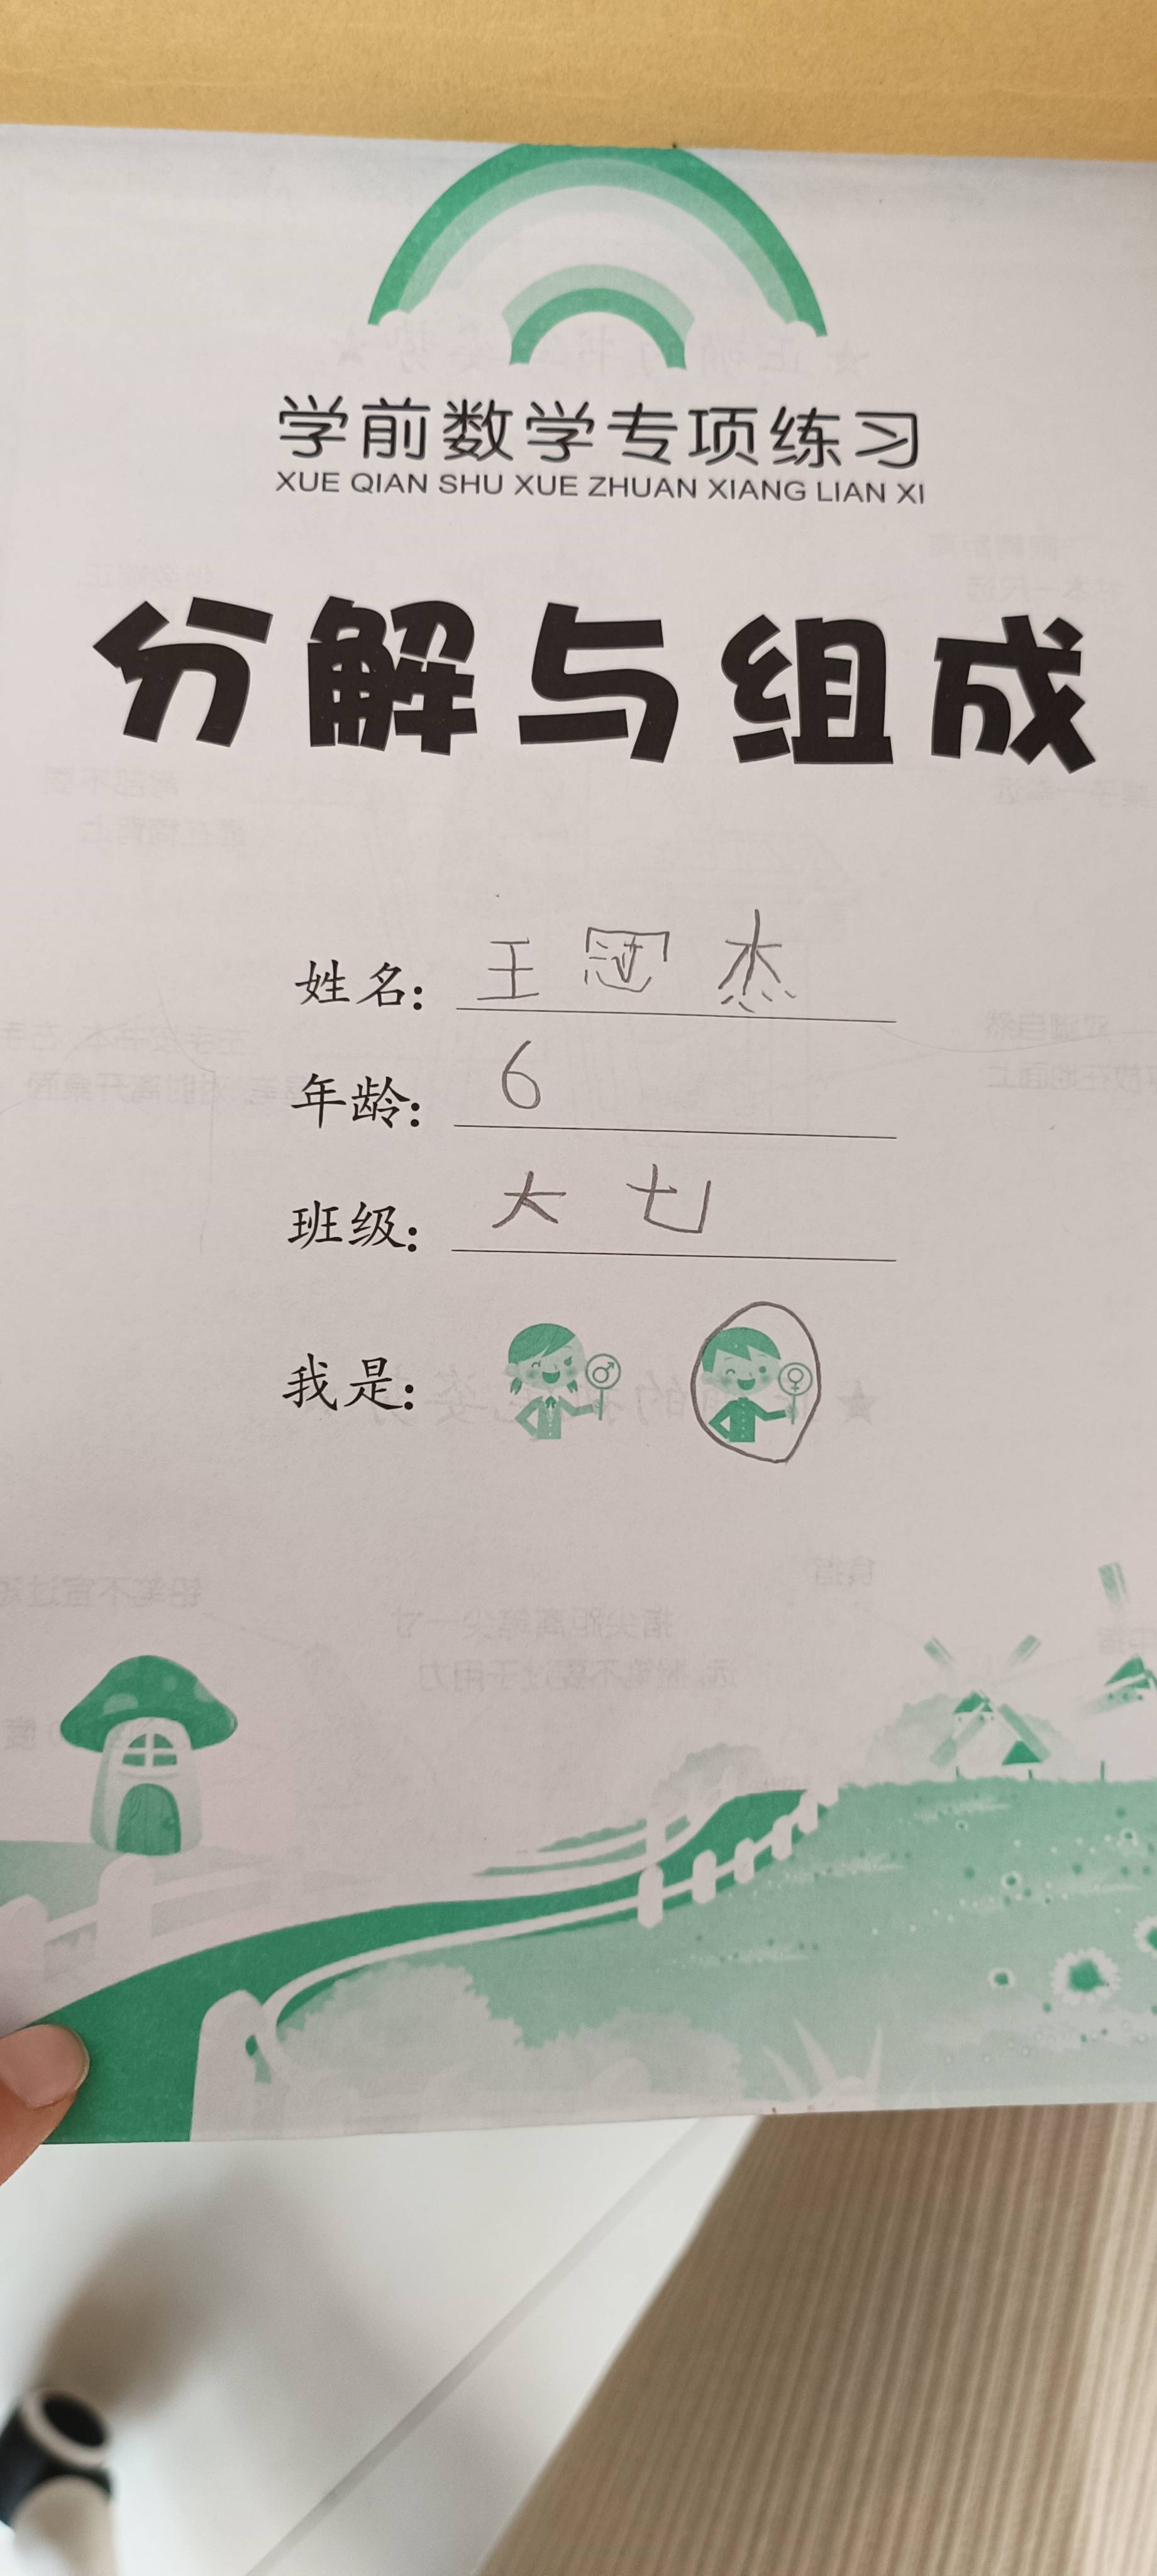 学前数学专项练习
XUE QIAN SHU XUE ZHUAN XIANG LIAN XI
分解与组成
姓名: 王冠杰
年龄: 6
班级: 大七
我是: